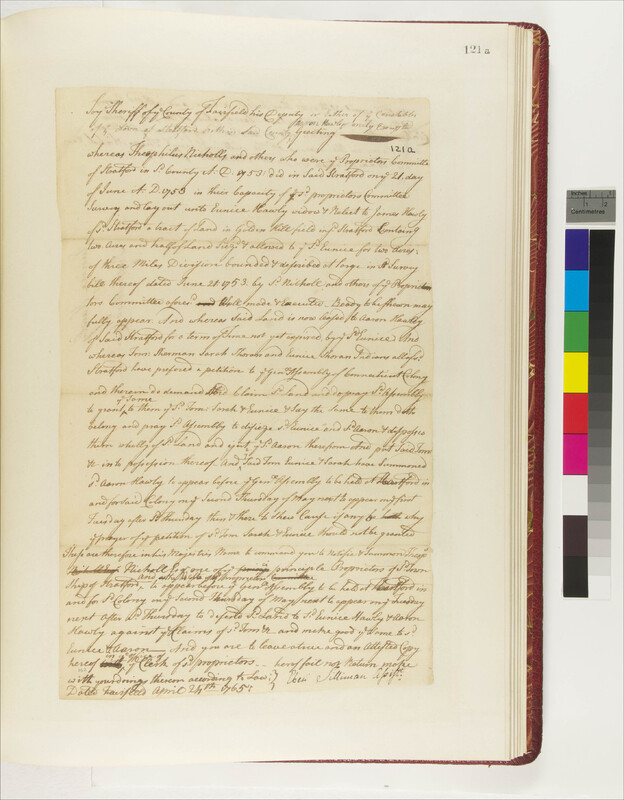 121a
Sheriff of ye County of Fairfield his Deputy or either of ye Constables
of ye Town of Stratford within Said County Greeting
121a
whereas Theophilus Nicholls and others who were ye Proprietors Committee
of Stratford in Sd County A: D. 1753: did in Said Stratford on ye 21 day
of June A: D. 1753 in their Capacity of Sd proprietors Committee
Survey and lay out unto Eunice Hawly widow & Relict to James Hawly
of Sd Stratford a tract of Land in Golden Hill field in Sd Stratford Containing
two Acres and half of Land
& allowed to ye Sd Eunice for two
of three Miles Division bounded & described at large in Survey
bill thereof dated June 21: 1753. by Sd Nicholl and others of ye Proprie
tors Committee aforesd well made & Executed. Ready to be Shewn may
fully appear. And whereas Said Land is now leased to Aaron Hawley
of Said Stratford for a term of time not yet expired by ye Sd Eunice And
whereas Tom: Sherman Sarah Shoran and Eunice Shoran Indians all of Sd
Stratford have prefered a petition to ye Genll Assembly of Connecticut Colony
and therein do demand and Claim Sd Land and do pray Sd Assembly
ye Same
to grant to them ye Sd Tom: Sarah & Eunice & Say the Same to them doth
belong and pray Sd Assembly to
Sd Eunice and Sd Aaron & dispossess
them wholly of Sd Land and eject ye Sd Aaron therefrom And put Said Tom
& into possession thereof. And Said Tom Eunice & Sarah have Summoned
Sd Aaron Hawly to appear before ye Genll Assembly to be held at Hartford in
and for said Colony on ye Second Thursday of May next to appear on ye first
Tuesday after Sd Thursday then & there to Shew Cause if any be why
ye prayer of ye petition of Sd Tom Sarah & Eunice Should not be granted
These are therefore in his Majesties Name to command you to Notifie & Summon
Nicholl Esqr one of ye principle Proprietors of Sd Town
Ship of Stratford to appear before ye Genll Assembly to be held at Hartford in
and for Sd Colony on ye Second Thursday of May next to appear on ye Tuesday
next after Sd Thursday to defend Sd Land to Sd Eunice Hawly & Aaron
Hawly against ye Claims of Sd Tom & and make good ye Same to Sd
Eunice & Aaron And you are to leave a true and an Attested Copy
hereof with ye Clerk of Sd proprietors hereof fail not Return make
with your doings therein according to Law
Silliman
Dated Fairfield April 24th 1765